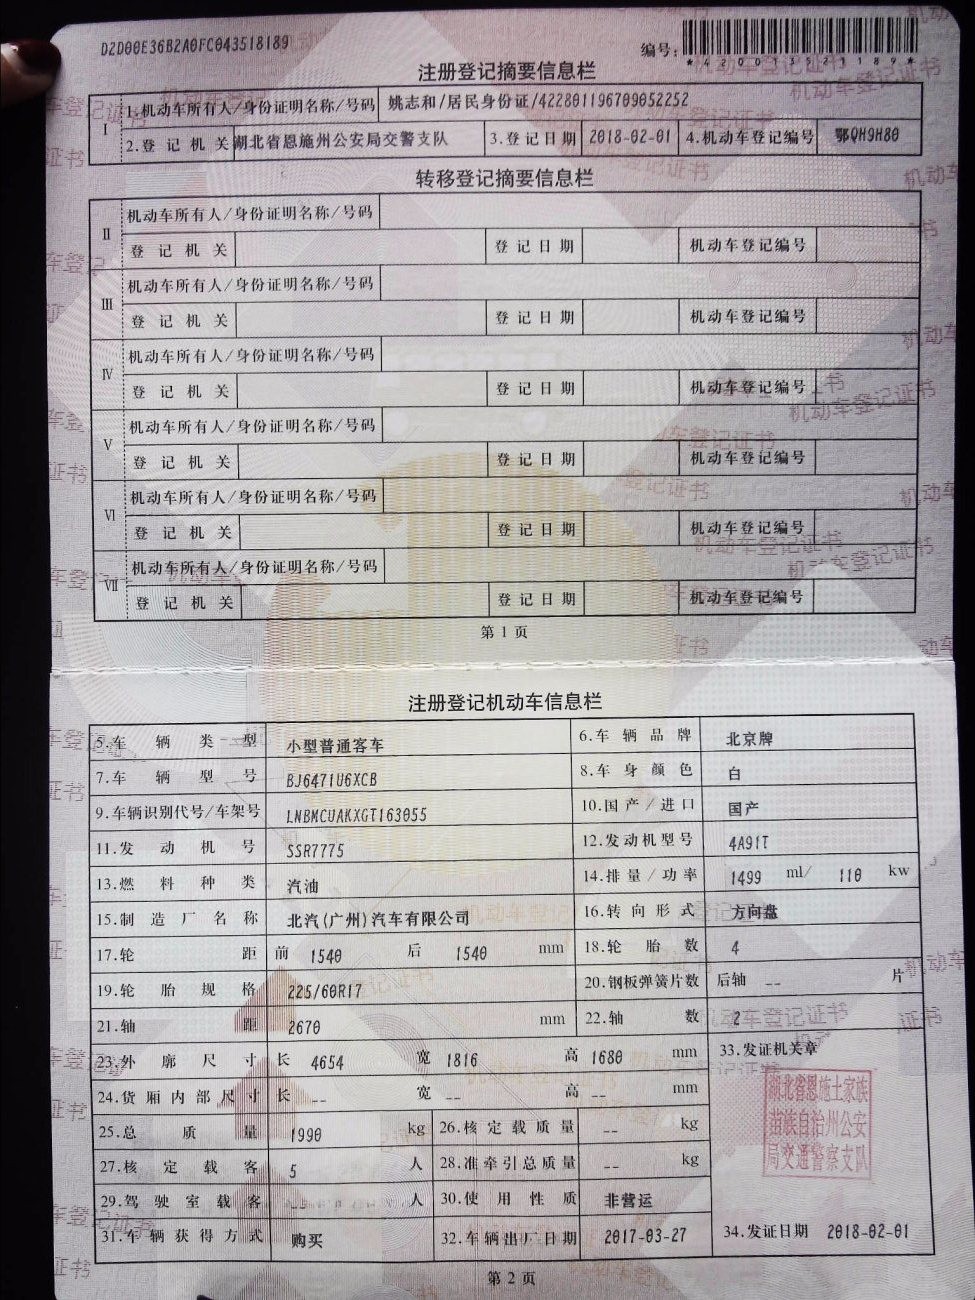 D2D00E36B2A0FC043518189
编号:
*420013521189*
注册登记摘要信息栏
I
1.机动车所有人/身份证明名称/号码 姚志和/居民身份证/422801196709052252
2.登记机关 湖北省恩施州公安局交警支队 3.登记日期 2018-02-01 4.机动车登记编号 鄂QH9H80
转移登记摘要信息栏
II 机动车所有人/身份证明名称/号码
登记机关 登记日期 机动车登记编号
III 机动车所有人/身份证明名称/号码
登记机关 登记日期 机动车登记编号
IV 机动车所有人/身份证明名称/号码
登记机关 登记日期 机动车登记编号
V 机动车所有人/身份证明名称/号码
登记机关 登记日期 机动车登记编号
VI 机动车所有人/身份证明名称/号码
登记机关 登记日期 机动车登记编号
VII 机动车所有人/身份证明名称/号码
登记机关 登记日期 机动车登记编号
第1页
注册登记机动车信息栏
5.车辆类型 小型普通客车 6.车辆品牌 北京牌
7.车辆型号 BJ6471U6XCB 8.车身颜色 白
9.车辆识别代号/车架号 LNBMCUAKXGT163055 10.国产/进口 国产
11.发动机号 SSR7775 12.发动机型号 4A91T
13.燃料种类 汽油 14.排量/功率 1499 ml/ 110 kw
15.制造厂名称 北汽(广州)汽车有限公司 16.转向形式 方向盘
17.轮距 前 1540 后 1540 mm 18.轮胎数 4
19.轮胎规格 225/60R17 20.钢板弹簧片数 后轴 -- 片
21.轴距 2670 mm 22.轴数 2
23.外廓尺寸 长 4654 宽 1816 高 1680 mm 33.发证机关章
24.货厢内部尺寸 长 -- 宽 -- 高 -- mm
湖北省恩施土家族
苗族自治州公安
局交通警察支队
25.总质量 1990 kg 26.核定载质量 -- kg
27.核定载客 5 人 28.准牵引总质量 -- kg
29.驾驶室载客 -- 人 30.使用性质 非营运
31.车辆获得方式 购买 32.车辆出厂日期 2017-03-27 34.发证日期 2018-02-01
第2页